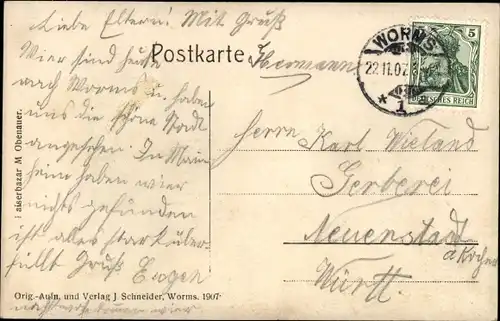 Liebe Eltern! Mit Gruß
Hermann
Postkarte
Wier sind heute
nach Worms u. haben
uns die schöne Stadt
angesehen. In Mann
heim haben wier
nichts gefunden
ist alles stark über-
füllt Gruß Eugen
WORMS
22.11.07.
* 1
5
DEUTSCHES REICH
Herrn Karl Wieland
Gerberei
Neuenstadt
a Kocher
Württ.
Kaiserbazar M Obenauer.
Orig.-Aufn. und Verlag J Schneider, Worms. 1907
wier